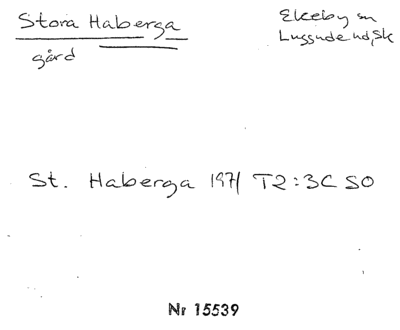 Stora Haberga
gård
Ekeby sn
Luggude hd, Sk
St. Haberga 1971 T2:3C SO
Nr 15539